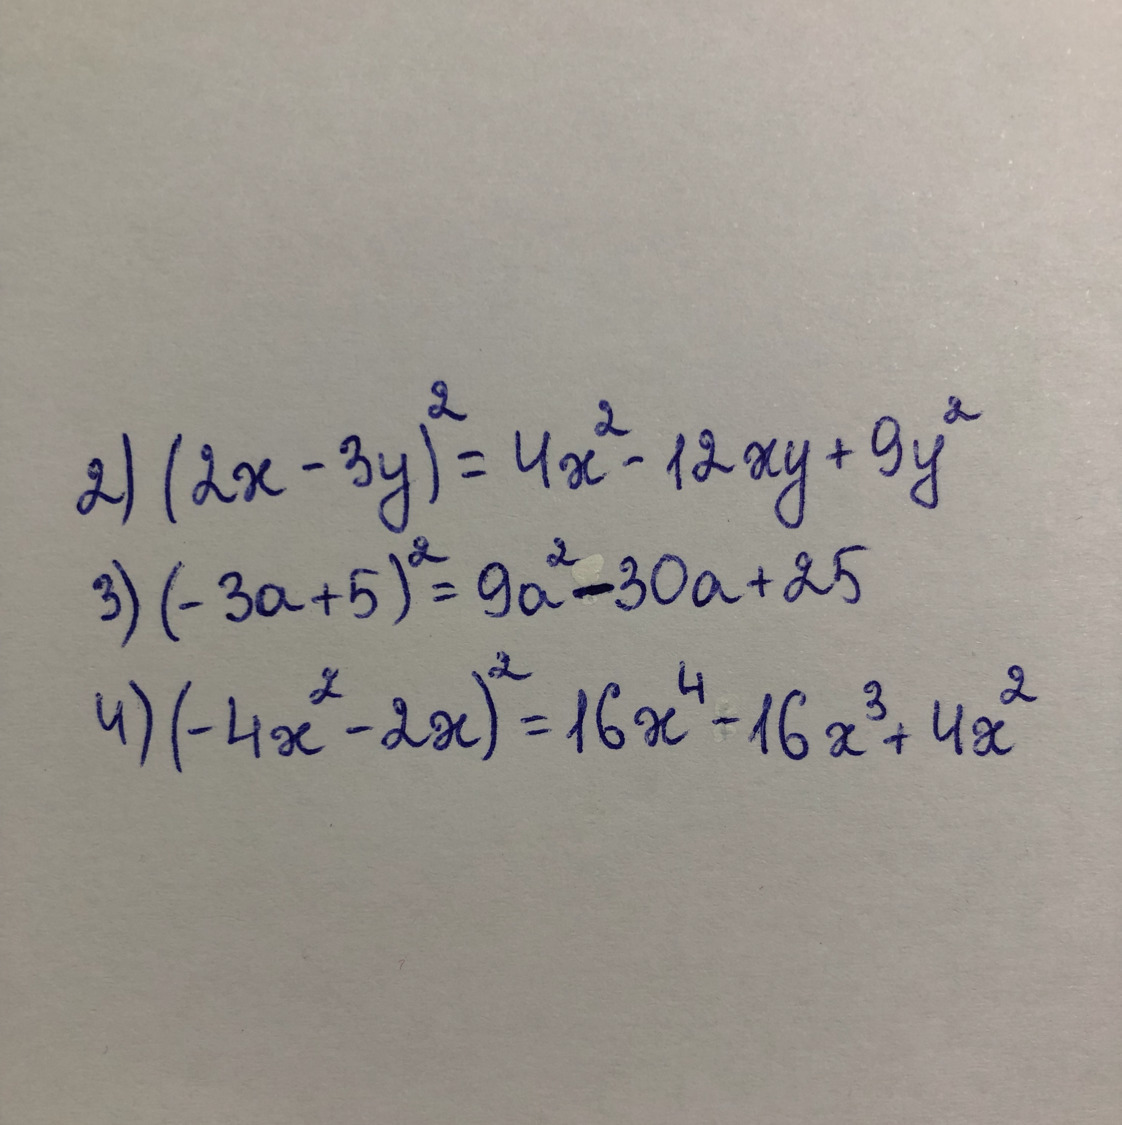 2) (2x - 3y)² = 4x² - 12xy + 9y²
3) (-3a + 5)² = 9a² - 30a + 25
4) (-4x² - 2x)² = 16x⁴ - 16x³ + 4x²